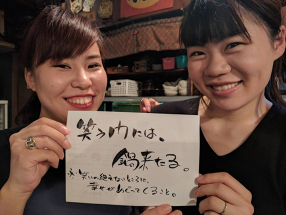 笑う門には、
鍋来たる。
※笑いの絶えないところに、
幸せがめぐってくること。